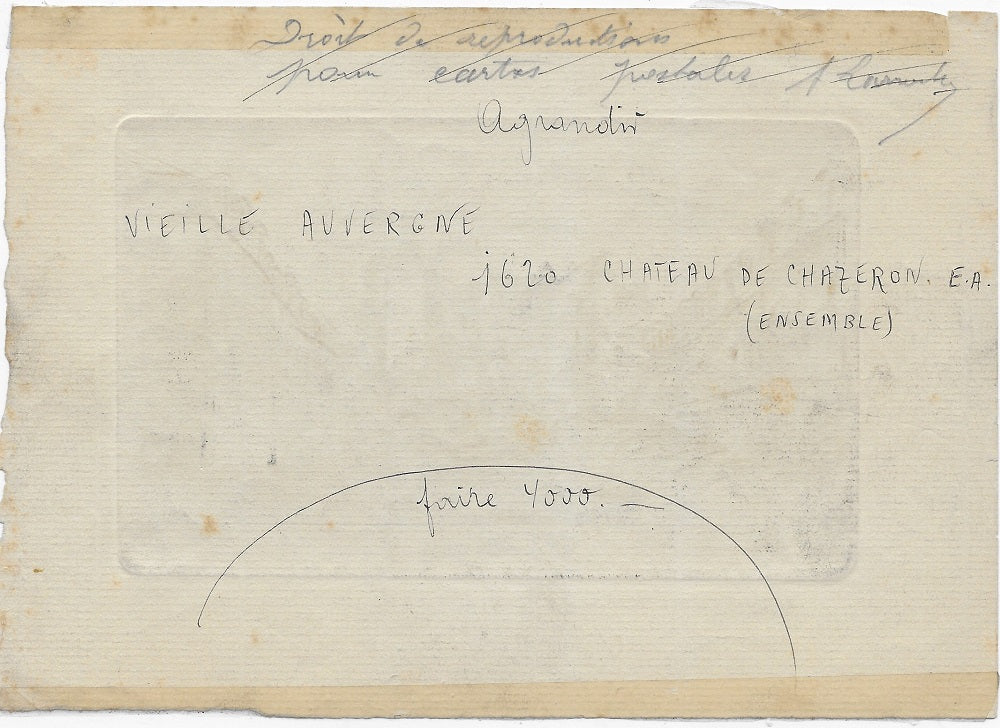 Droit de reproductions
pour cartes postales
Agrandir
VIEILLE AUVERGNE
1620 CHATEAU DE CHAZERON. E.A.
(ENSEMBLE)
faire 4000. —